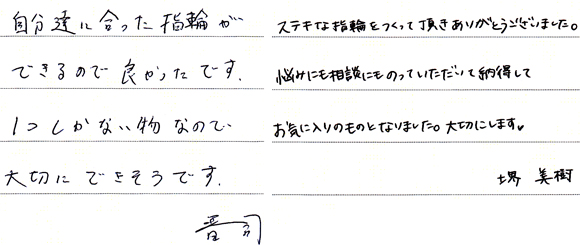 自分達に合った指輪が
できるので良かったです.
1つしかない物なので
大切にできそうです.
晋司
ステキな指輪をつくって頂きありがとうございました。
悩みにも相談にものっていただいて納得して
お気に入りのものとなりました。大切にします♥
堺 美樹